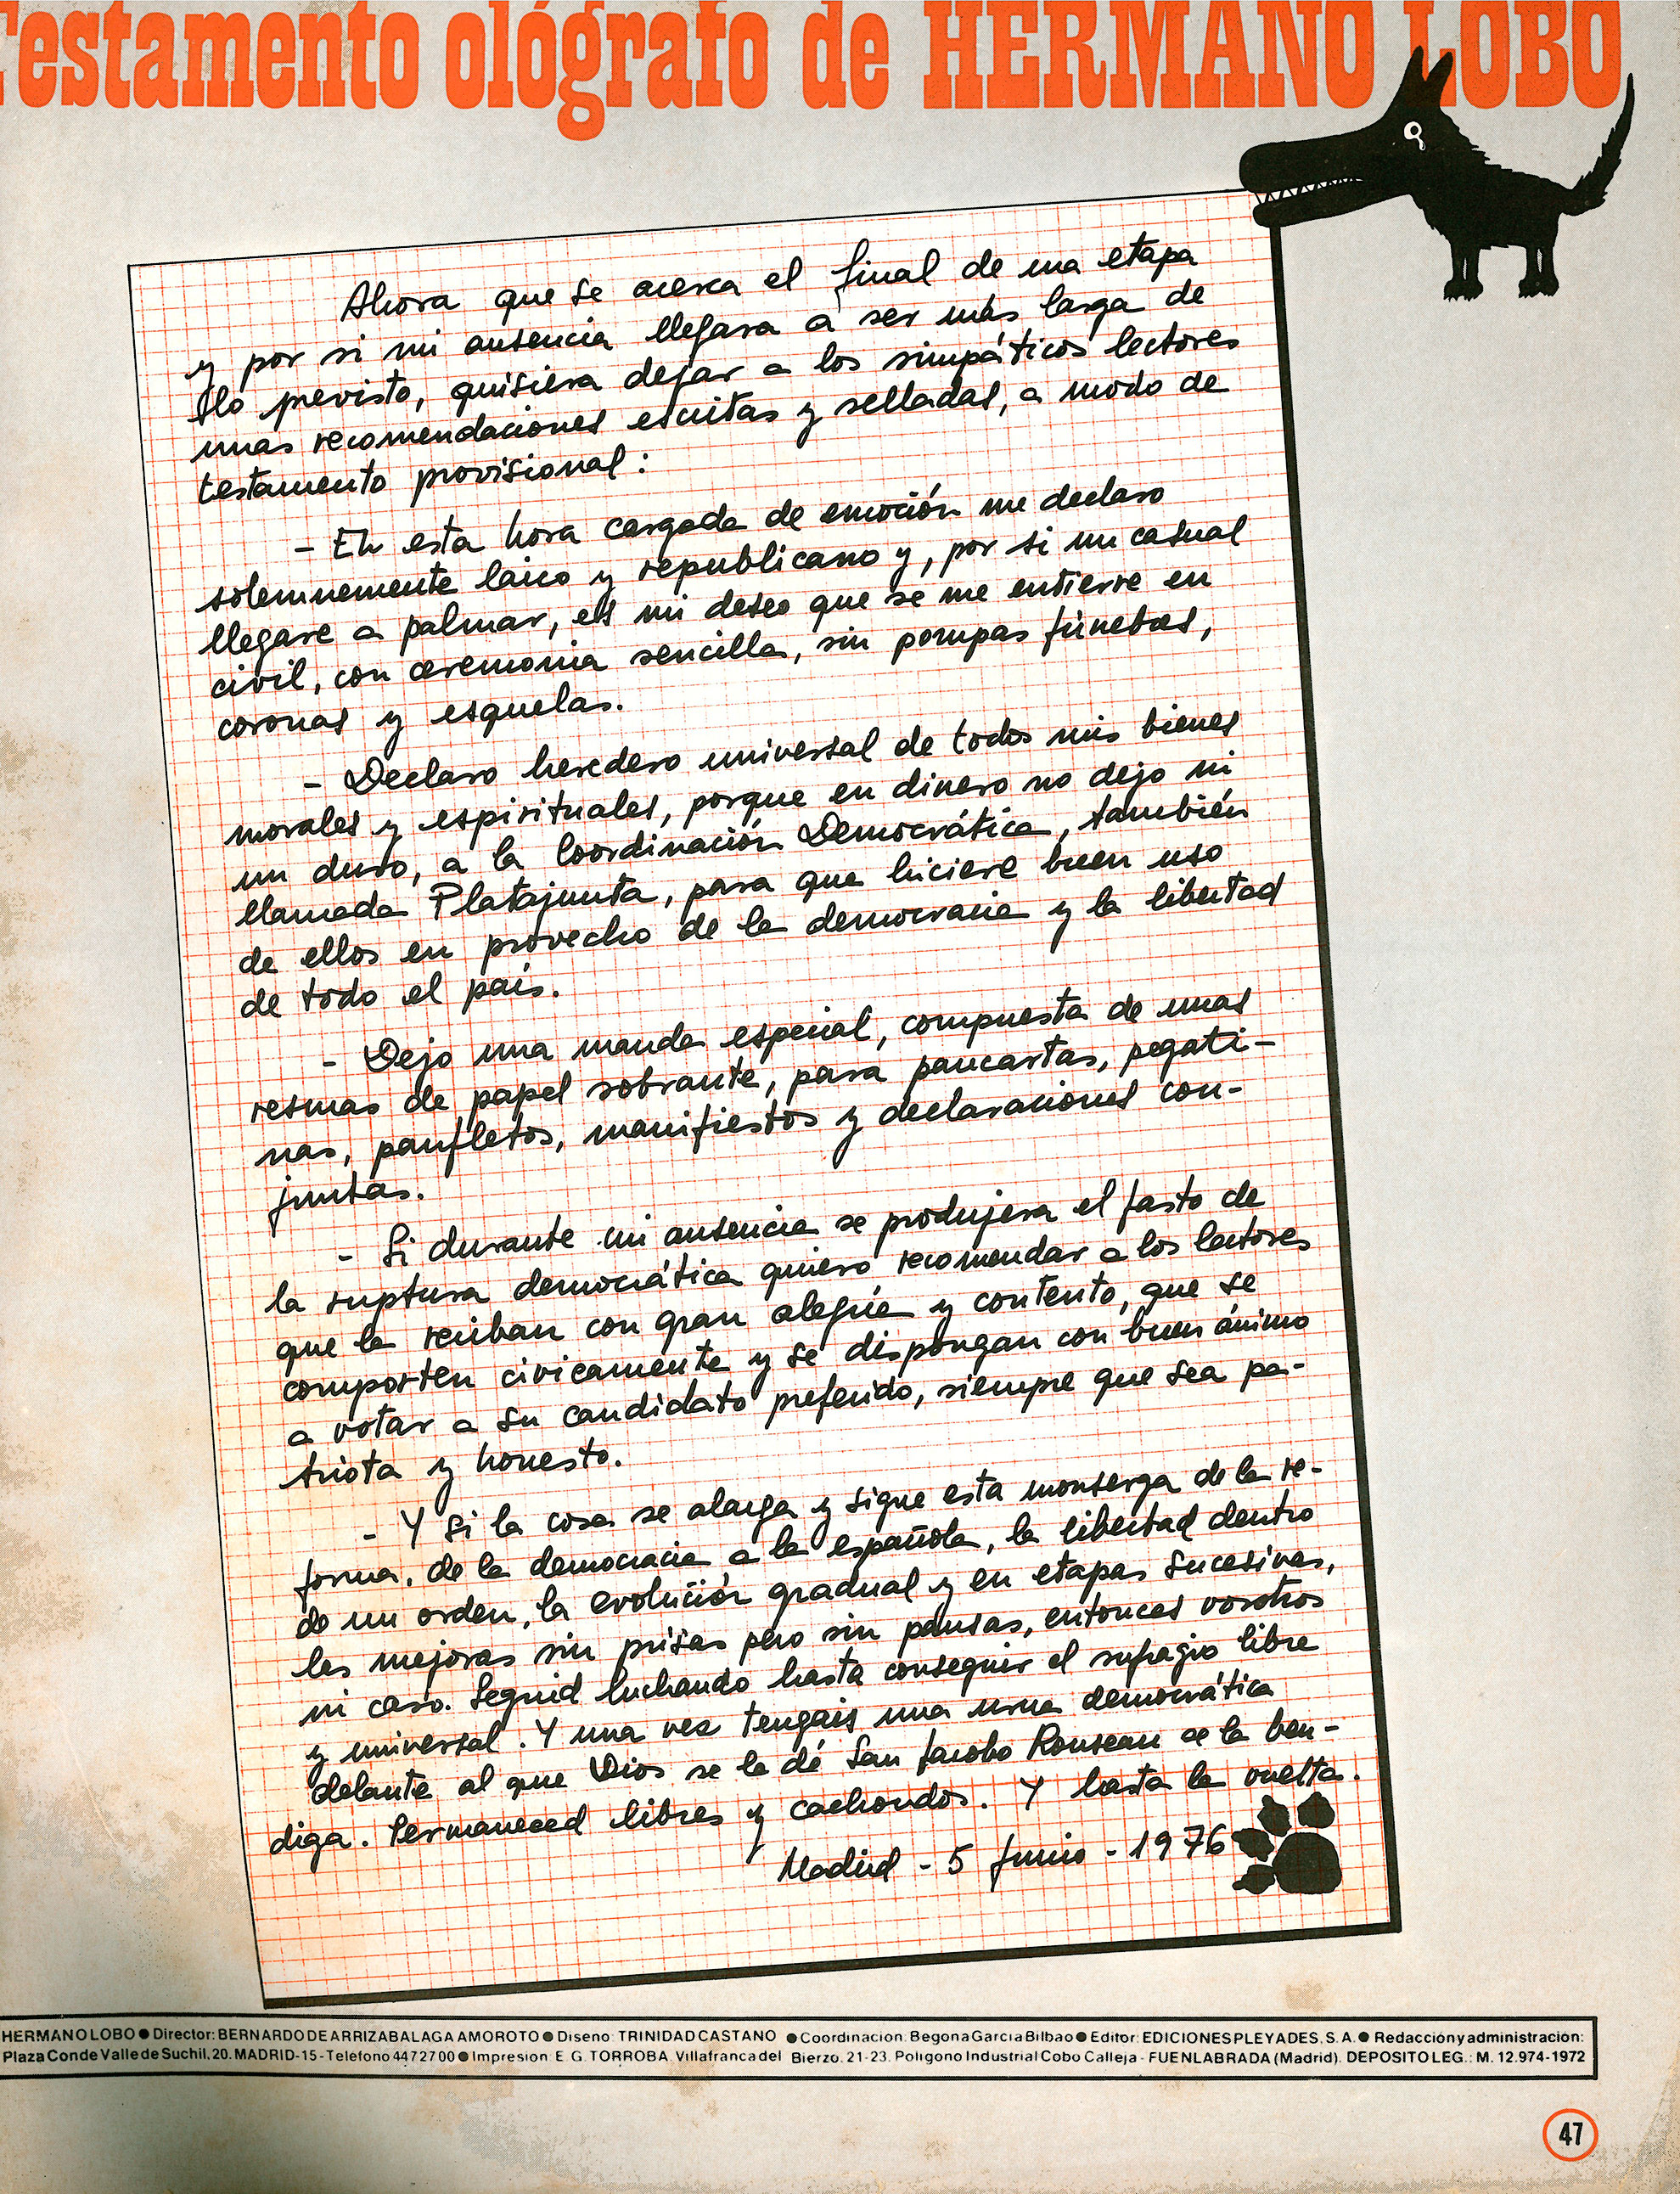 Testamento ológrafo de HERMANO LOBO
Ahora que se acerca el final de una etapa
y por si mi ausencia llegara a ser más larga de
lo previsto, quisiera dejar a los simpáticos lectores
unas recomendaciones escritas y selladas, a modo de
testamento provisional:
- En esta hora cargada de emoción me declaro
solemnemente laico y republicano y, por si un casual
llegare a palmar, es mi deseo que se me entierre en
civil, con ceremonia sencilla, sin pompas fúnebres,
coronas y esquelas.
- Declaro heredero universal de todos mis bienes
morales y espirituales, porque en dinero no dejo ni
un duro, a la Coordinación Democrática, también
llamada Platajunta, para que hiciere buen uso
de ellos en provecho de la democracia y la libertad
de todo el país.
- Dejo una manda especial, compuesta de unas
resmas de papel sobrante, para pancartas, pegati-
nas, panfletos, manifiestos y declaraciones con-
juntas.
- Si durante mi ausencia se produjera el fasto de
la ruptura democrática quiero recomendar a los lectores
que la reciban con gran alegría y contento, que se
comporten civicamente y se dispongan con buen ánimo
a votar a su candidato preferido, siempre que sea pa-
triota y honesto.
- Y si la cosa se alarga y sigue esta monserga de la re-
forma, de la democracia a la española, la libertad dentro
de un orden, la evolución gradual y en etapas sucesivas,
las mejoras sin prisas pero sin pausas, entonces vosotros
ni caso. Seguid luchando hasta conseguir el sufragio libre
y universal. Y una vez tengais una urna democrática
delante al que Dios se la dé San Jacobo Rouseau se la ben-
diga. Permaneced libres y cachondos. Y hasta la vuelta.
Madrid - 5 Junio - 1976
HERMANO LOBO ● Director: BERNARDO DE ARRIZABALAGA AMOROTO ● Diseno: TRINIDAD CASTANO ● Coordinacion: Begona Garcia Bilbao ● Editor: EDICIONES PLEYADES, S. A. ● Redacción y administración:
Plaza Conde Valle de Suchil, 20. MADRID-15 - Teléfono 447 27 00 ● Impresion: E. G. TORROBA. Villafranca del Bierzo. 21-23. Poligono Industrial Cobo Calleja - FUENLABRADA (Madrid). DEPOSITO LEG.: M. 12.974-1972
47